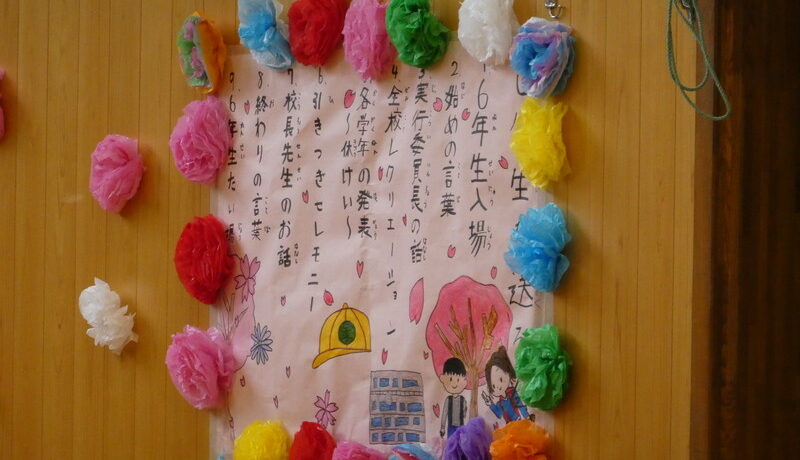 年生
送
1.6年生入場
2.始めの言葉
3.実行委員長の話
4.全校レクリエーション
5.各学年の発表
〜休けい〜
6.引きつぎセレモニー
7.校長先生のお話
8.終わりの言葉
9.6年生たい場